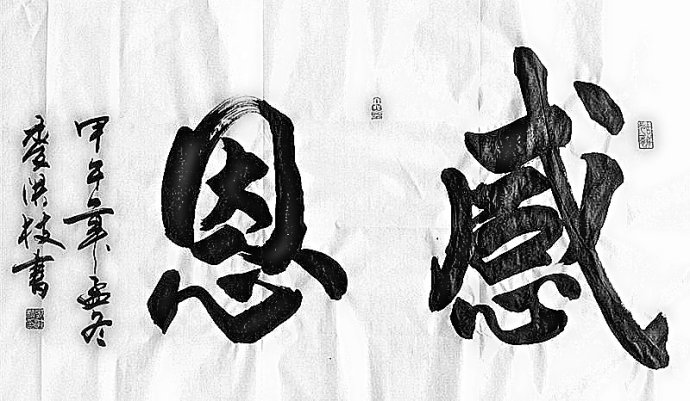 感恩
甲午年孟冬
洪枝書